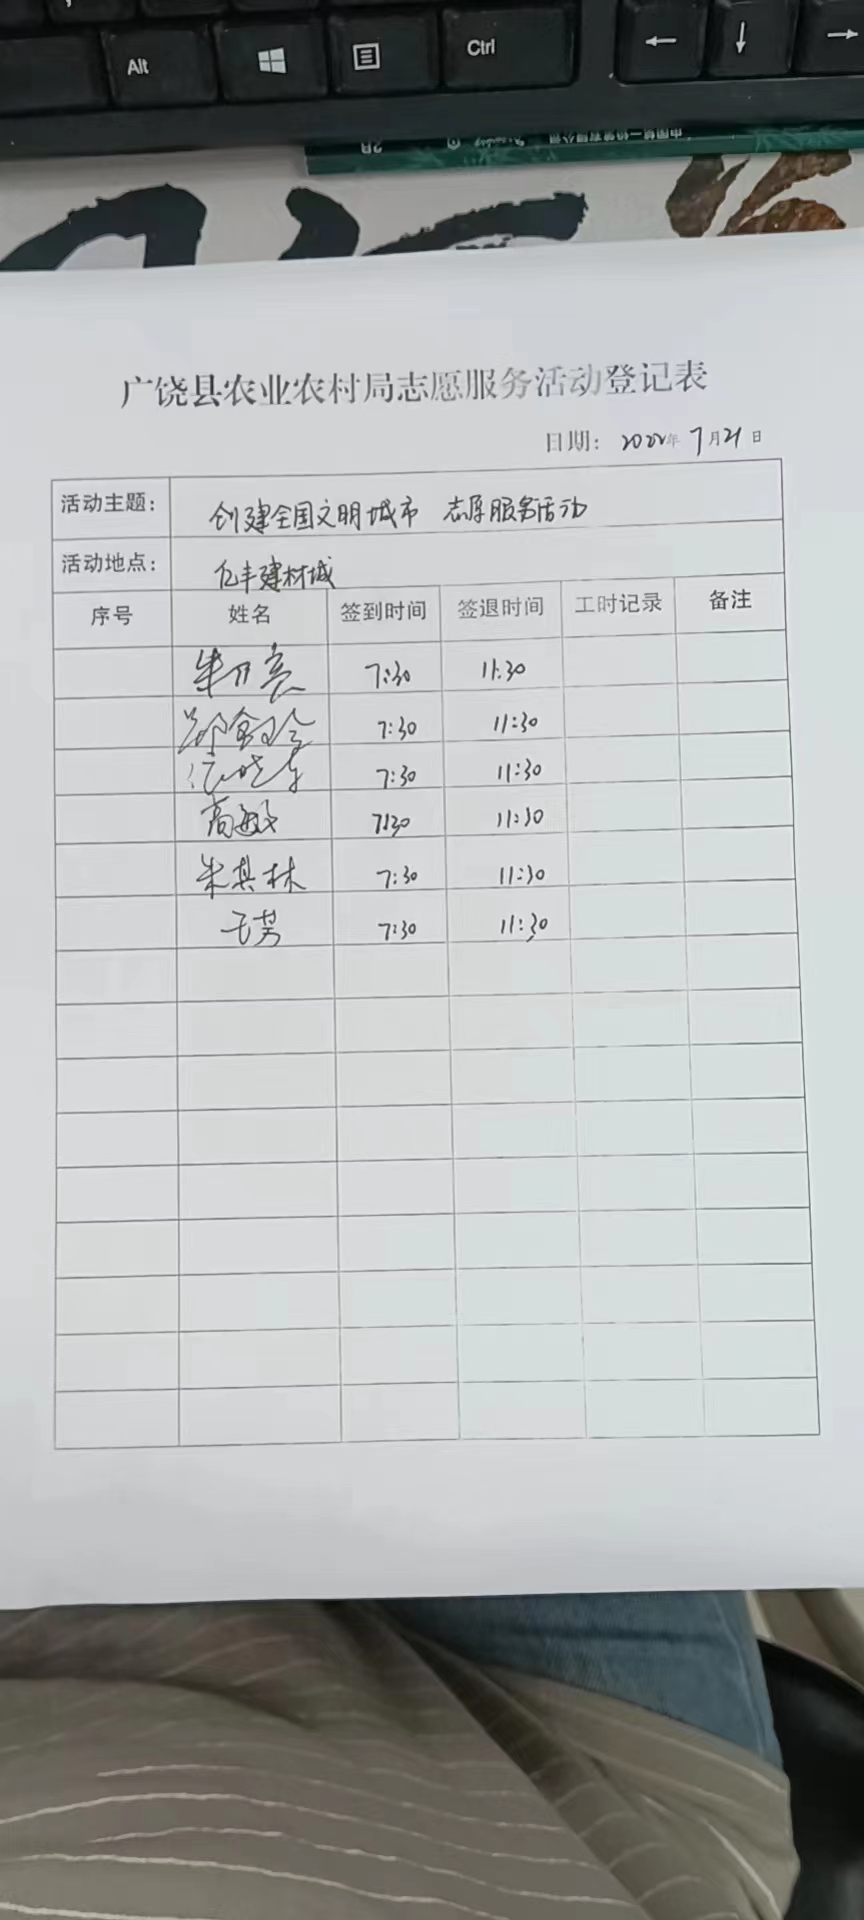 Alt
Ctrl
广饶县农业农村局志愿服务活动登记表
日期: 2022年 7月21日
活动主题: 创建全国文明城市 志愿服务活动
活动地点: 亿丰建材城
序号 姓名 签到时间 签退时间 工时记录 备注
7:30 11:30
7:30 11:30
7:30 11:30
高敏 7:30 11:30
朱其林 7:30 11:30
于芳 7:30 11:30